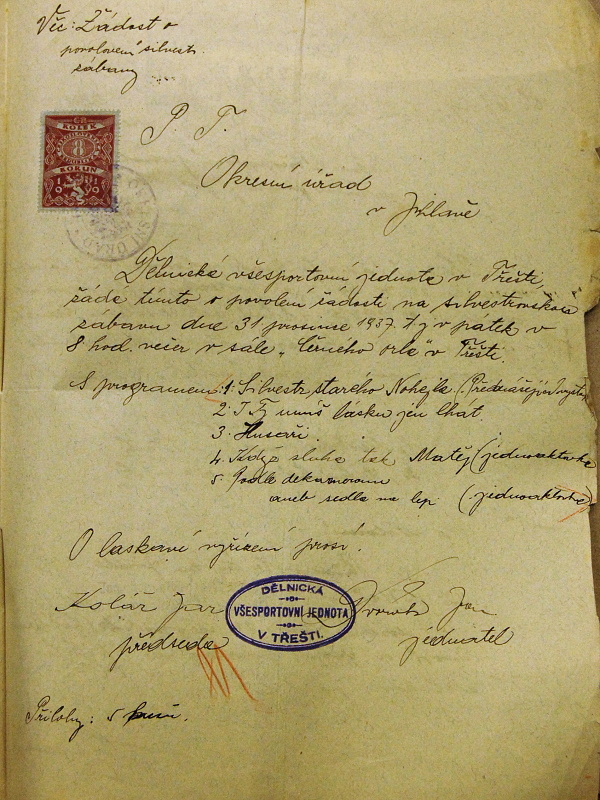 Věc: Žádost o
povolení silvestr.
zábavy
KOLEK
8
KORUN
19 19
P. T.
Okresní úřad
v Jihlavě
Dělnická všesportovní jednota v Třešti
žádá tímto o povolení žádosti na silvestrovskou
zábavu dne 31 prosince 1937. t. j. v pátek v
8 hod. večer v sále „Černého orla" v Třešti.
S programem: 1. Silvestr starého Nohejla
2. I Ty umíš lásku jen lhat.
3 Husaři.
4. Když sluha tak Matěj (jednoaktovka
5. Podle dekameronu
aneb sedla na lep (jednoaktovka)
O laskavé vyřízení prosí.
Kolář Jar
předseda
DĚLNICKÁ
VŠESPORTOVNÍ JEDNOTA
V TŘEŠTI.
Jan
jednatel
Přílohy: 5